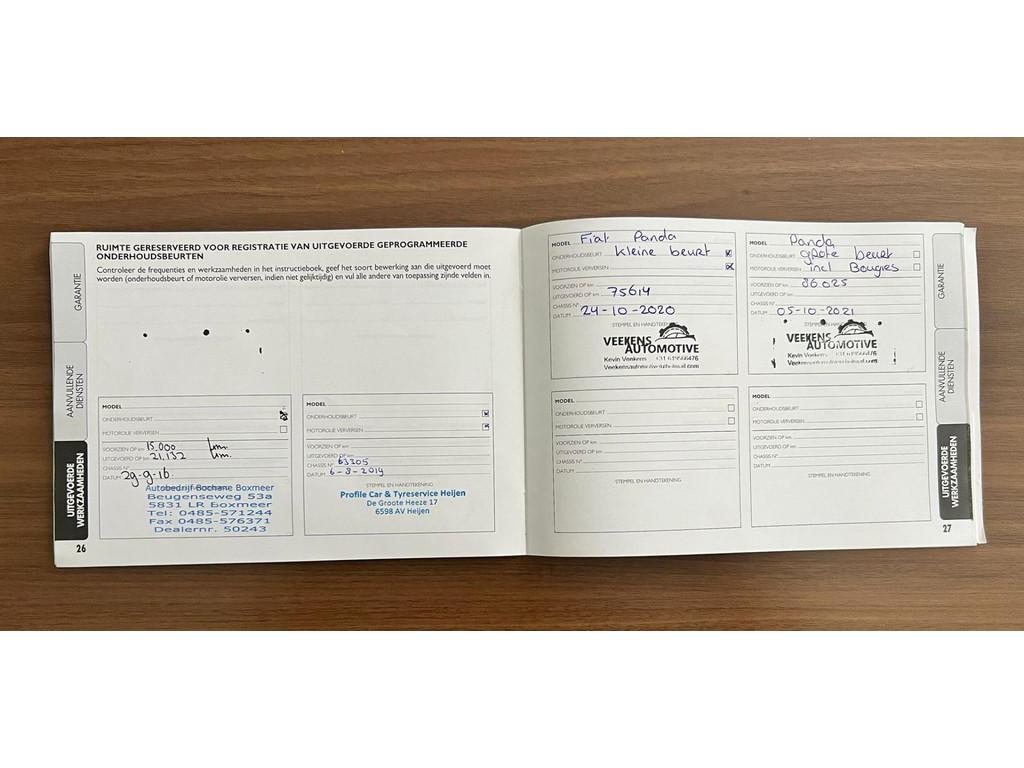 GARANTIE
AANVULLENDE
DIENSTEN
UITGEVOERDE
WERKZAAMHEDEN
RUIMTE GERESERVEERD VOOR REGISTRATIE VAN UITGEVOERDE GEPROGRAMMEERDE
ONDERHOUDSBEURTEN
Controleer de frequenties en werkzaamheden in het instructieboek, geef het soort bewerking aan die uitgevoerd moet
worden (onderhoudsbeurt of motorolie verversen, indien niet gelijktijdig) en vul alle andere van toepassing zijnde velden in.
MODEL
ONDERHOUDSBEURT
MOTOROLIE VERVERSEN
VOORZIEN OP km 15.000 km.
UITGEVOERD OP km 21,132 km.
CHASSIS N°
DATUM 29-9-16
Autobedrijf Bochane Boxmeer
Beugenseweg 53a
5831 LR Boxmeer
Tel: 0485-571244
Fax 0485-576371
Dealernr. 50243
MODEL
ONDERHOUDSBEURT
MOTOROLIE VERVERSEN
VOORZIEN OP km
UITGEVOERD OP km
CHASSIS N° 63305
DATUM 6-8-2019
STEMPEL EN HANDTEKENING
Profile Car & Tyreservice Heijen
De Groote Heeze 17
6598 AV Heijen
26
MODEL Fiat Panda
ONDERHOUDSBEURT kleine beurt
MOTOROLIE VERVERSEN
VOORZIEN OP km
UITGEVOERD OP km 75614
CHASSIS N°
DATUM 24-10-2020
STEMPEL EN HANDTEKENING
VEEKENS
AUTOMOTIVE
Kevin Veekens +31 619566476
MODEL Panda
ONDERHOUDSBEURT grote beurt
MOTOROLIE VERVERSEN incl Bougies
VOORZIEN OP km 86025
UITGEVOERD OP km
CHASSIS N°
DATUM 05-10-2021
VEEKENS
AUTOMOTIVE
Kevin Veekens
MODEL
ONDERHOUDSBEURT
MOTOROLIE VERVERSEN
VOORZIEN OP km
UITGEVOERD OP km
CHASSIS N°
DATUM
STEMPEL EN HANDTEKENING
MODEL
ONDERHOUDSBEURT
MOTOROLIE VERVERSEN
VOORZIEN OP km
UITGEVOERD OP km
CHASSIS N°
DATUM
STEMPEL EN HANDTEKENING
GARANTIE
AANVULLENDE
DIENSTEN
UITGEVOERDE
WERKZAAMHEDEN
27